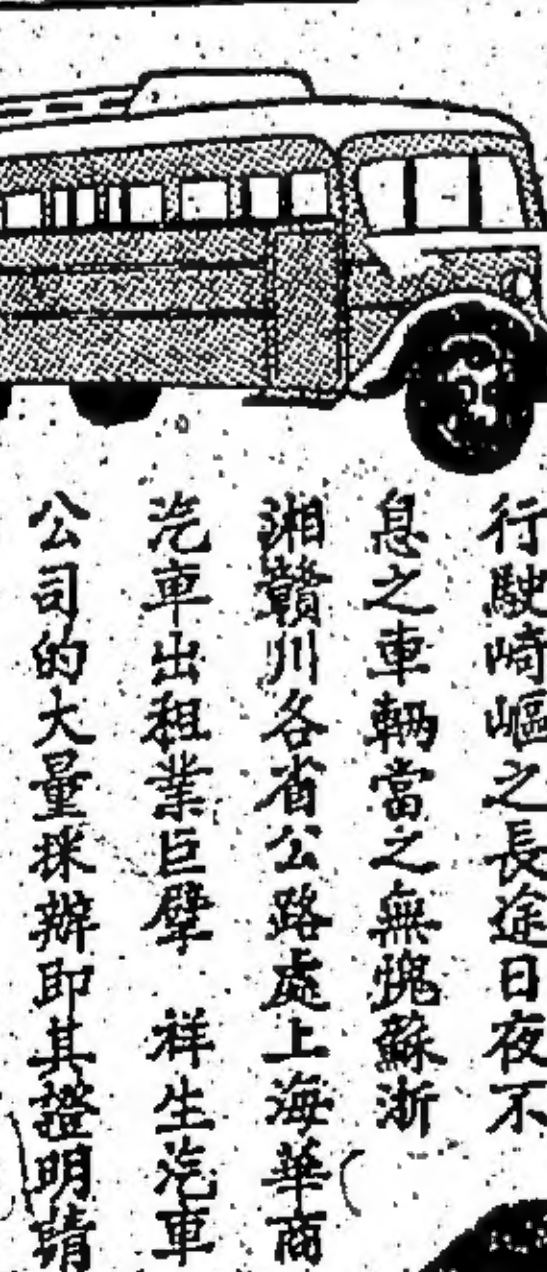 行駛崎嶇之長途日夜不
息之車輛當之無愧蘇浙
湘贛川各省公路處上海華商
汽車出租業巨擘 祥生汽車
公司的大量採辦即其證明請